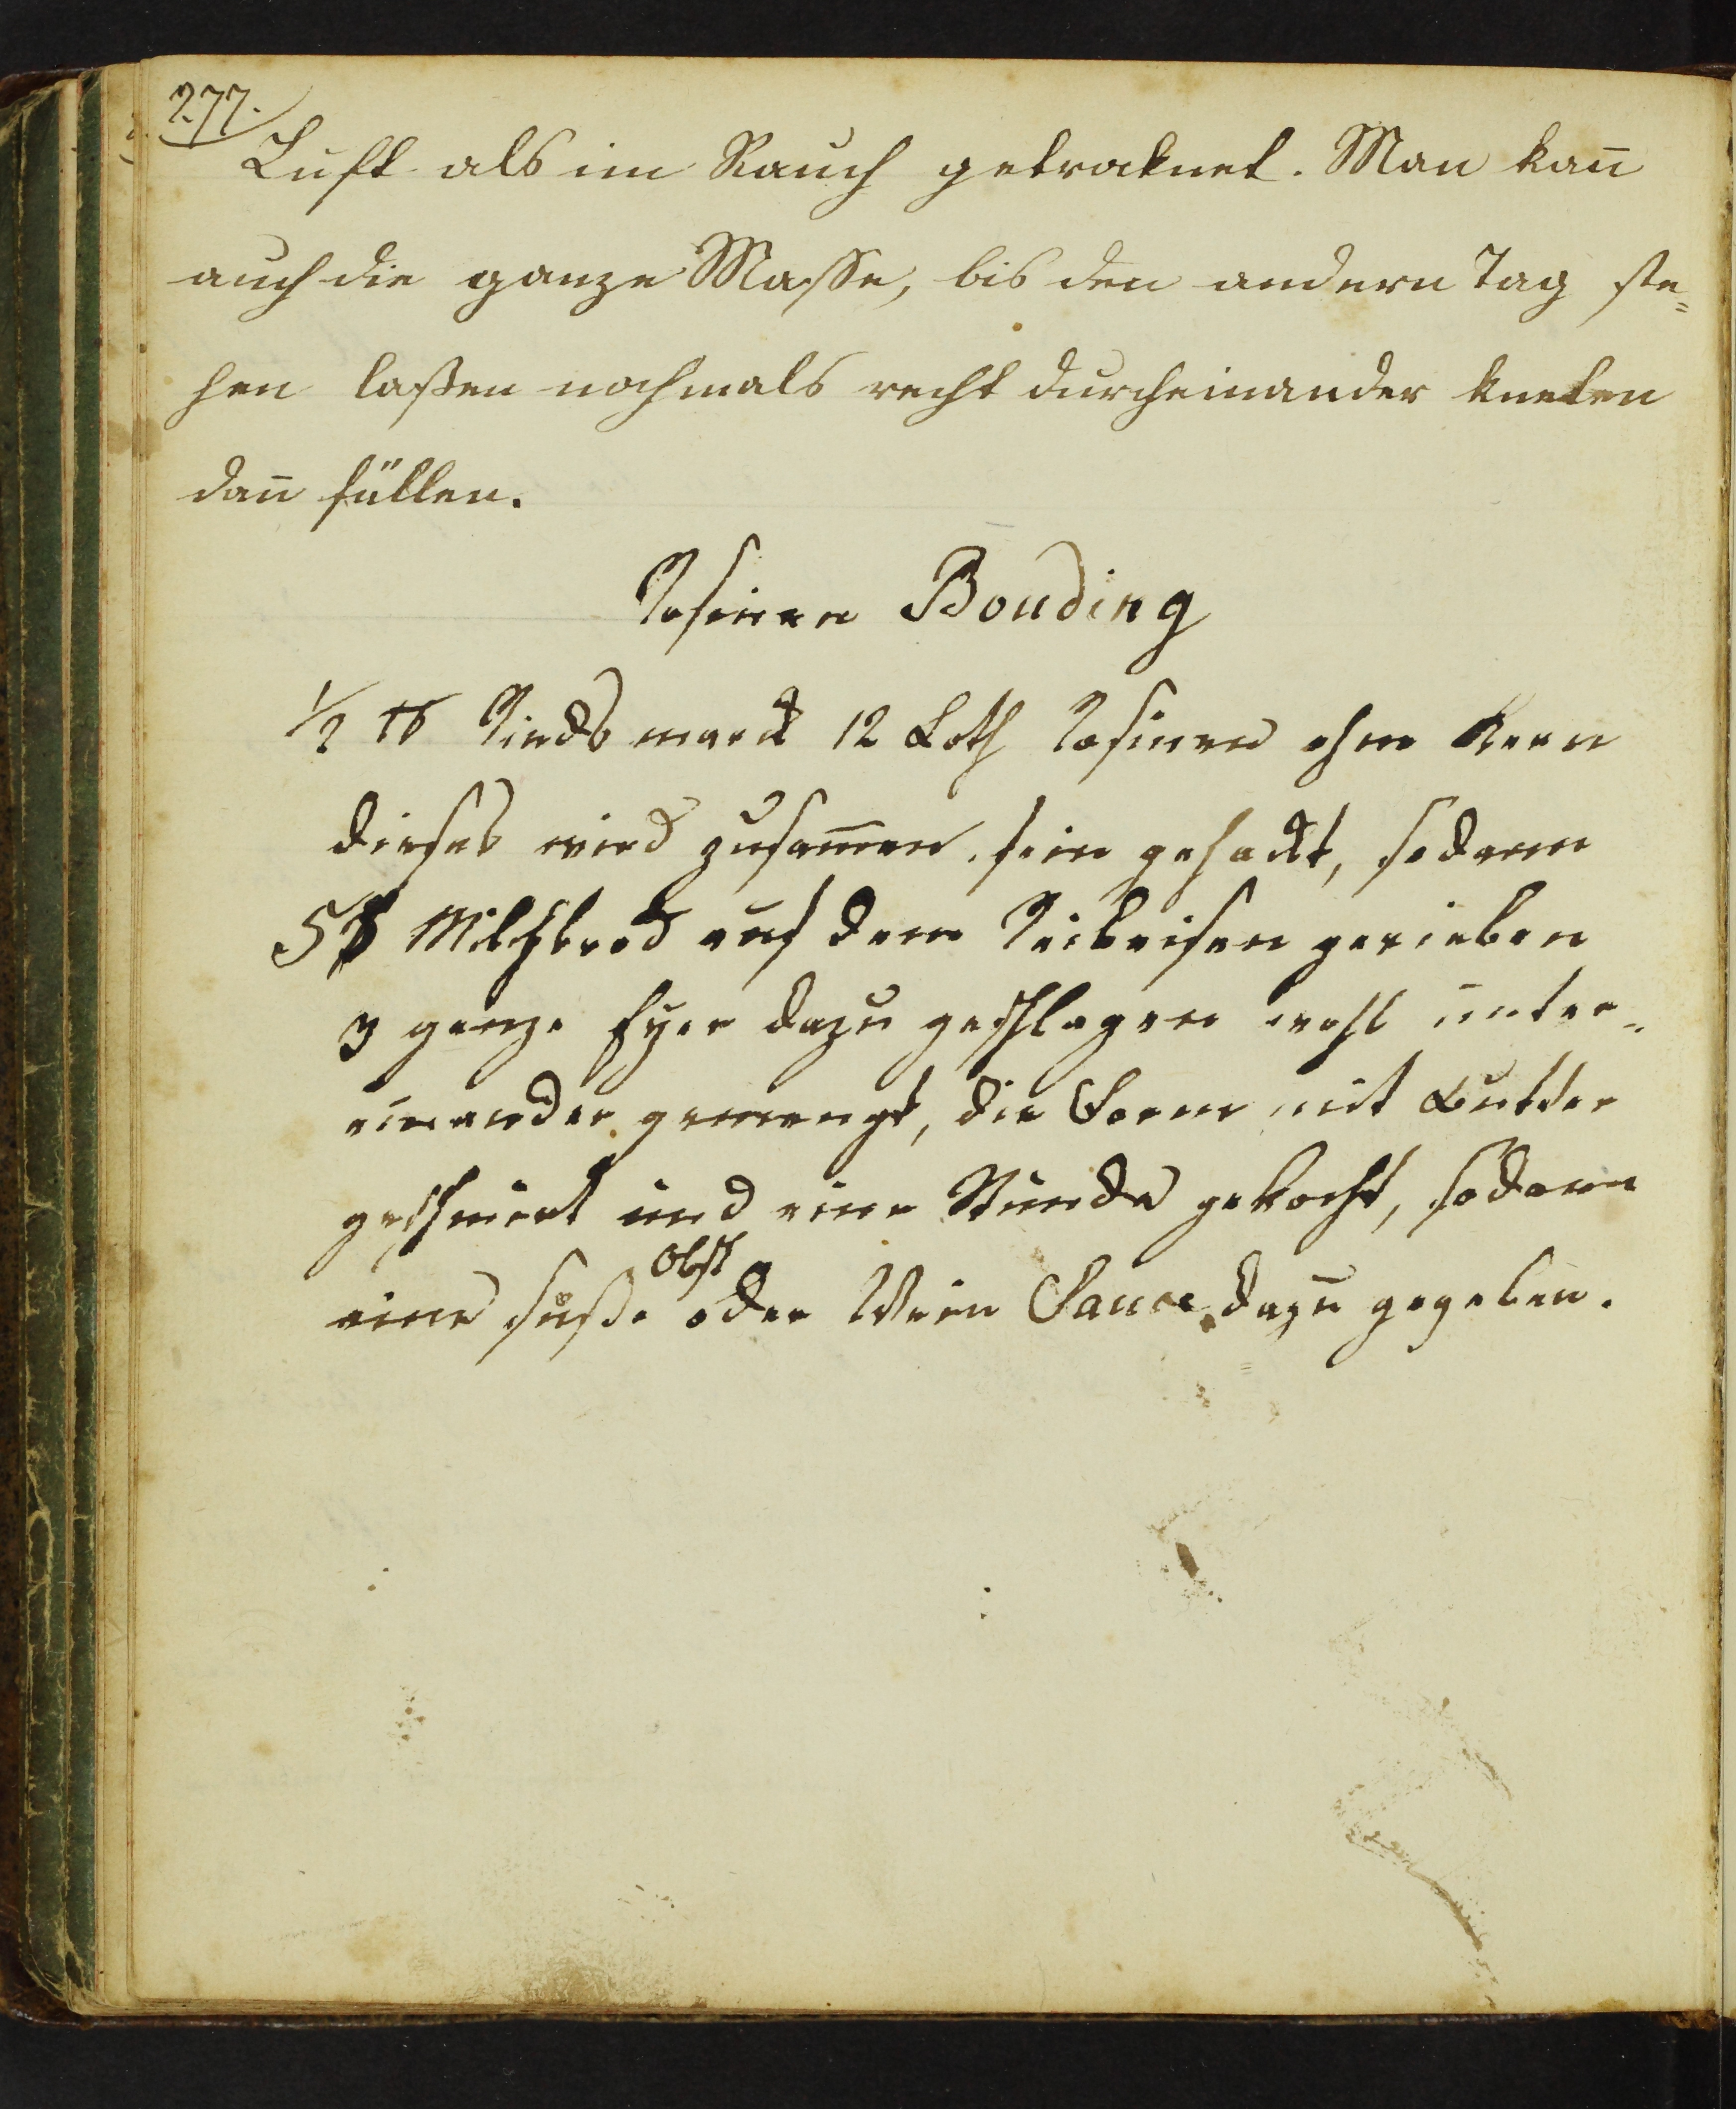 277.
Luft als im Rauch getroknet. Man kan̄
auch die ganze Masse, bis den andern Tag ste=
hen laßen nochmals recht durcheinander kneten
dan̄ füllen.
Rosinen Bouding
1/2 ℔ Rinds marck 12 Loth Rosinen ohne Kern
dieses wird zusam̄en fein gehackt, sodann
5 ß Milchbrod auf dem Reibeisen gerieben
3 ganze Eyer dazu geschlagen wohl unter=
einander gemengt, die Form mit Butter
geschmiert und eine Stunde gekocht, sodann
eine süße Obst oder Wein Sauce dazu gegeben.